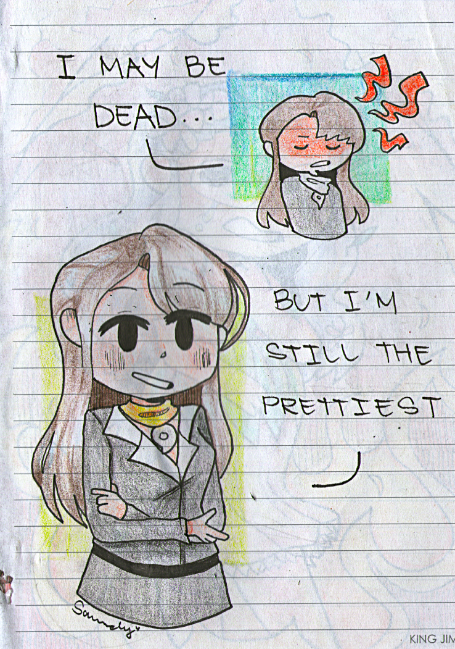 I MAY BE
DEAD...
BUT I'M
STILL THE
PRETTIEST
KING JIM